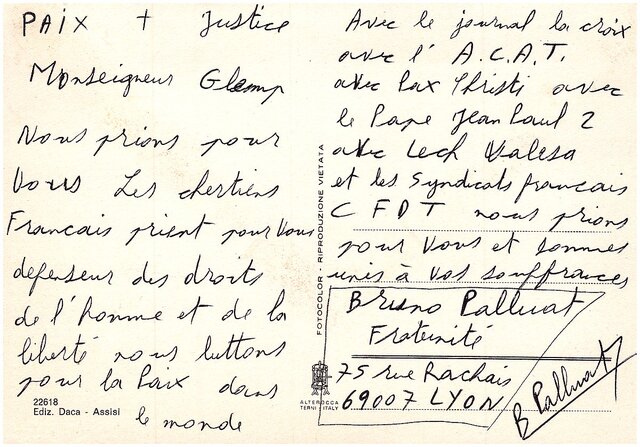 PAIX + Justice
Monseigneur Glemp
Nous prions pour
Vous Les chertiens
Francais prient pour Vous
defenseur des droits
de l'homme et de la
liberté nous luttons
pour la Paix dans
le monde
22618
Ediz. Daca - Assisi
FOTOCOLOR - RIPRODUZIONE VIETATA
ALTEROCCA
TERNI - ITALY
Avec le journal la croix
avec l' A.C.A.T.
avec Pax Christi avec
le Pape Jean Paul 2
avec Lech Walesa
et les Syndicats francais
C F D T nous prions
pour Vous et sommes
unis à vos souffrances
Bruno Palluat
Fraternité
75 rue Rachais
69007 LYON
B Palluat